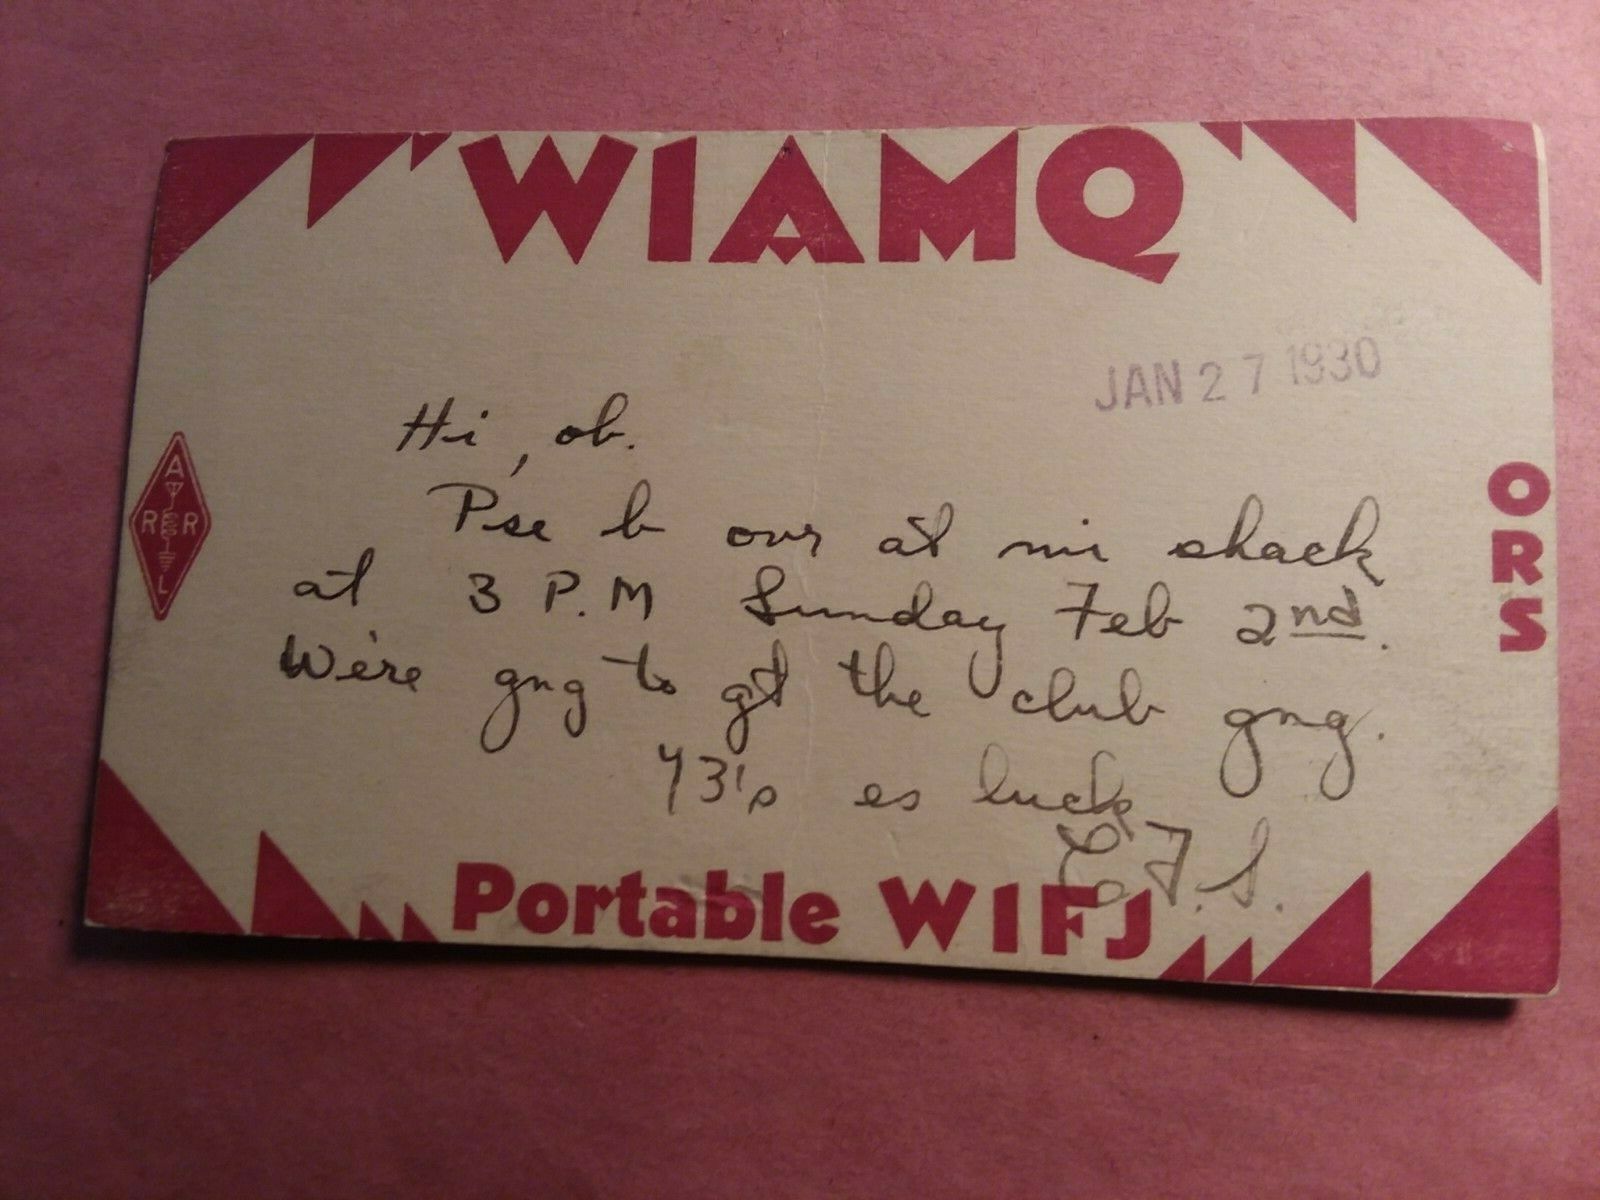 W1AMQ
JAN 27 1930
Hi, ob.
Pse b ovr at mi shack
at 3 P.M Sunday Feb 2nd.
We're gng to gt the club gng.
73's es luck
C.F.S.
A
R R
L
O
R
S
Portable W1FJ